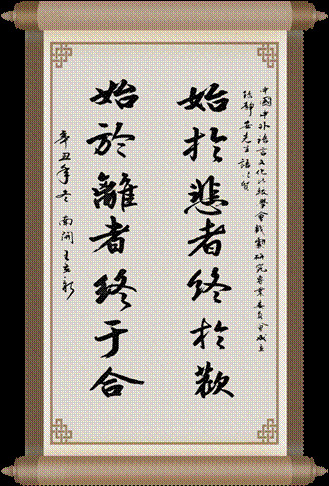 中國中外語言文化比較學會戲劇研究專業委員會成立
静安先生語以賀
始於悲者終於歡
始於離者終于合
辛丑年冬 南開 王立新